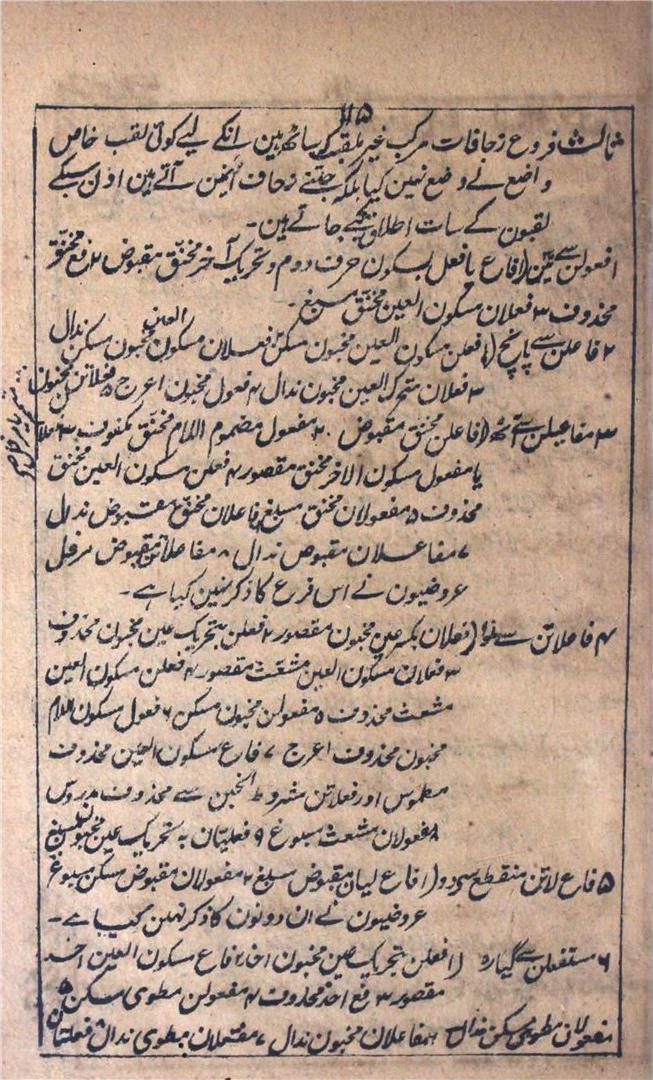 ۱۱۵
ثالث فروع زحافات مرکب غیر ملقب کے ساتھ ہین انکے لیے کوئی لقب خاص
واضع نے وضع نہین کیا بلکہ جتنے زحاف انمین آتے ہین اون سبکے
لقبون کے سات اطلاق کیے جاتے ہین۔
افعولن سے تین (۱ فاع یا فعل بسکون حرف دوم و تحریک آخر مخنق مقبوض ۲ فع مخنق
محذوف ۳ فعلان بسکون العین مخنق مسبغ۔
۲ فاعلن سے پانچ (۱ فعلن بسکون العین مخبون مسکن ۲ فعلان بسکون العین مخبون مسکن مذال
۳ فعلان متحرک العین مخبون مذال ۴ فعول مخبون اعرج ۵ فعلاتن مخبون
۳ مفاعیلن سے آٹھ (۱ فاعلن مخنق مقبوض ۲ مفعول مضموم اللام مخنق مکفوف ۳ فعلان
یا مفعول بسکون الاخر مخنق مقصور ۴ فعلن بسکون العین مخنق
محذوف ۵ مفعولان مخنق مسبغ ۶ فاعلان مخنق مقبوض مذال
۷ مفاعلان مقبوض مذال ۸ مفاعلاتن مقبوض مرفل
عروضیون نے اس فرع کا ذکر نہین کیا ہے۔
۴ فاعلاتن سے (۱ فعلان بکسر عین مخبون مقصور ۲ فعلن بتحریک عین مخبون محذوف
۳ فعلان بسکون العین مشعث مقصور ۴ فعلن بسکون العین
مشعث محذوف ۵ مفعولن مخبون مسکن ۶ فعول بسکون اللام
مخبون محذوف اعرج ۷ فاع بسکون العین محذوف
مطموس اور فعلاتن مشروط الخبن سے محذوف مدروس
۸ مفعولان مشعث مسبوغ ۹ فعلیتان بہ تحریک عین مخبون مسبغ
۵ فاع لاتن منقطع سے دو (۱ فاع لیان مقبوض مسبغ ۲ مفعولان مقبوض مسکن مسبوغ
عروضیون نے ان دونون کا ذکر نہین کیا ہے۔
۶ مستفعلن سے گیارہ (۱ فعلن بتحریک عین مخبون احذ ۲ فاع بسکون العین احذ
مقصور ۳ فع احذ محذوف ۴ مفعولن مطوی مسکن ۵
مفعولان مطوی مسکن مذال ۶ مفاعلان مخبون مذال ۷ مفتعلان مطوی مذال ۸ فعلتان